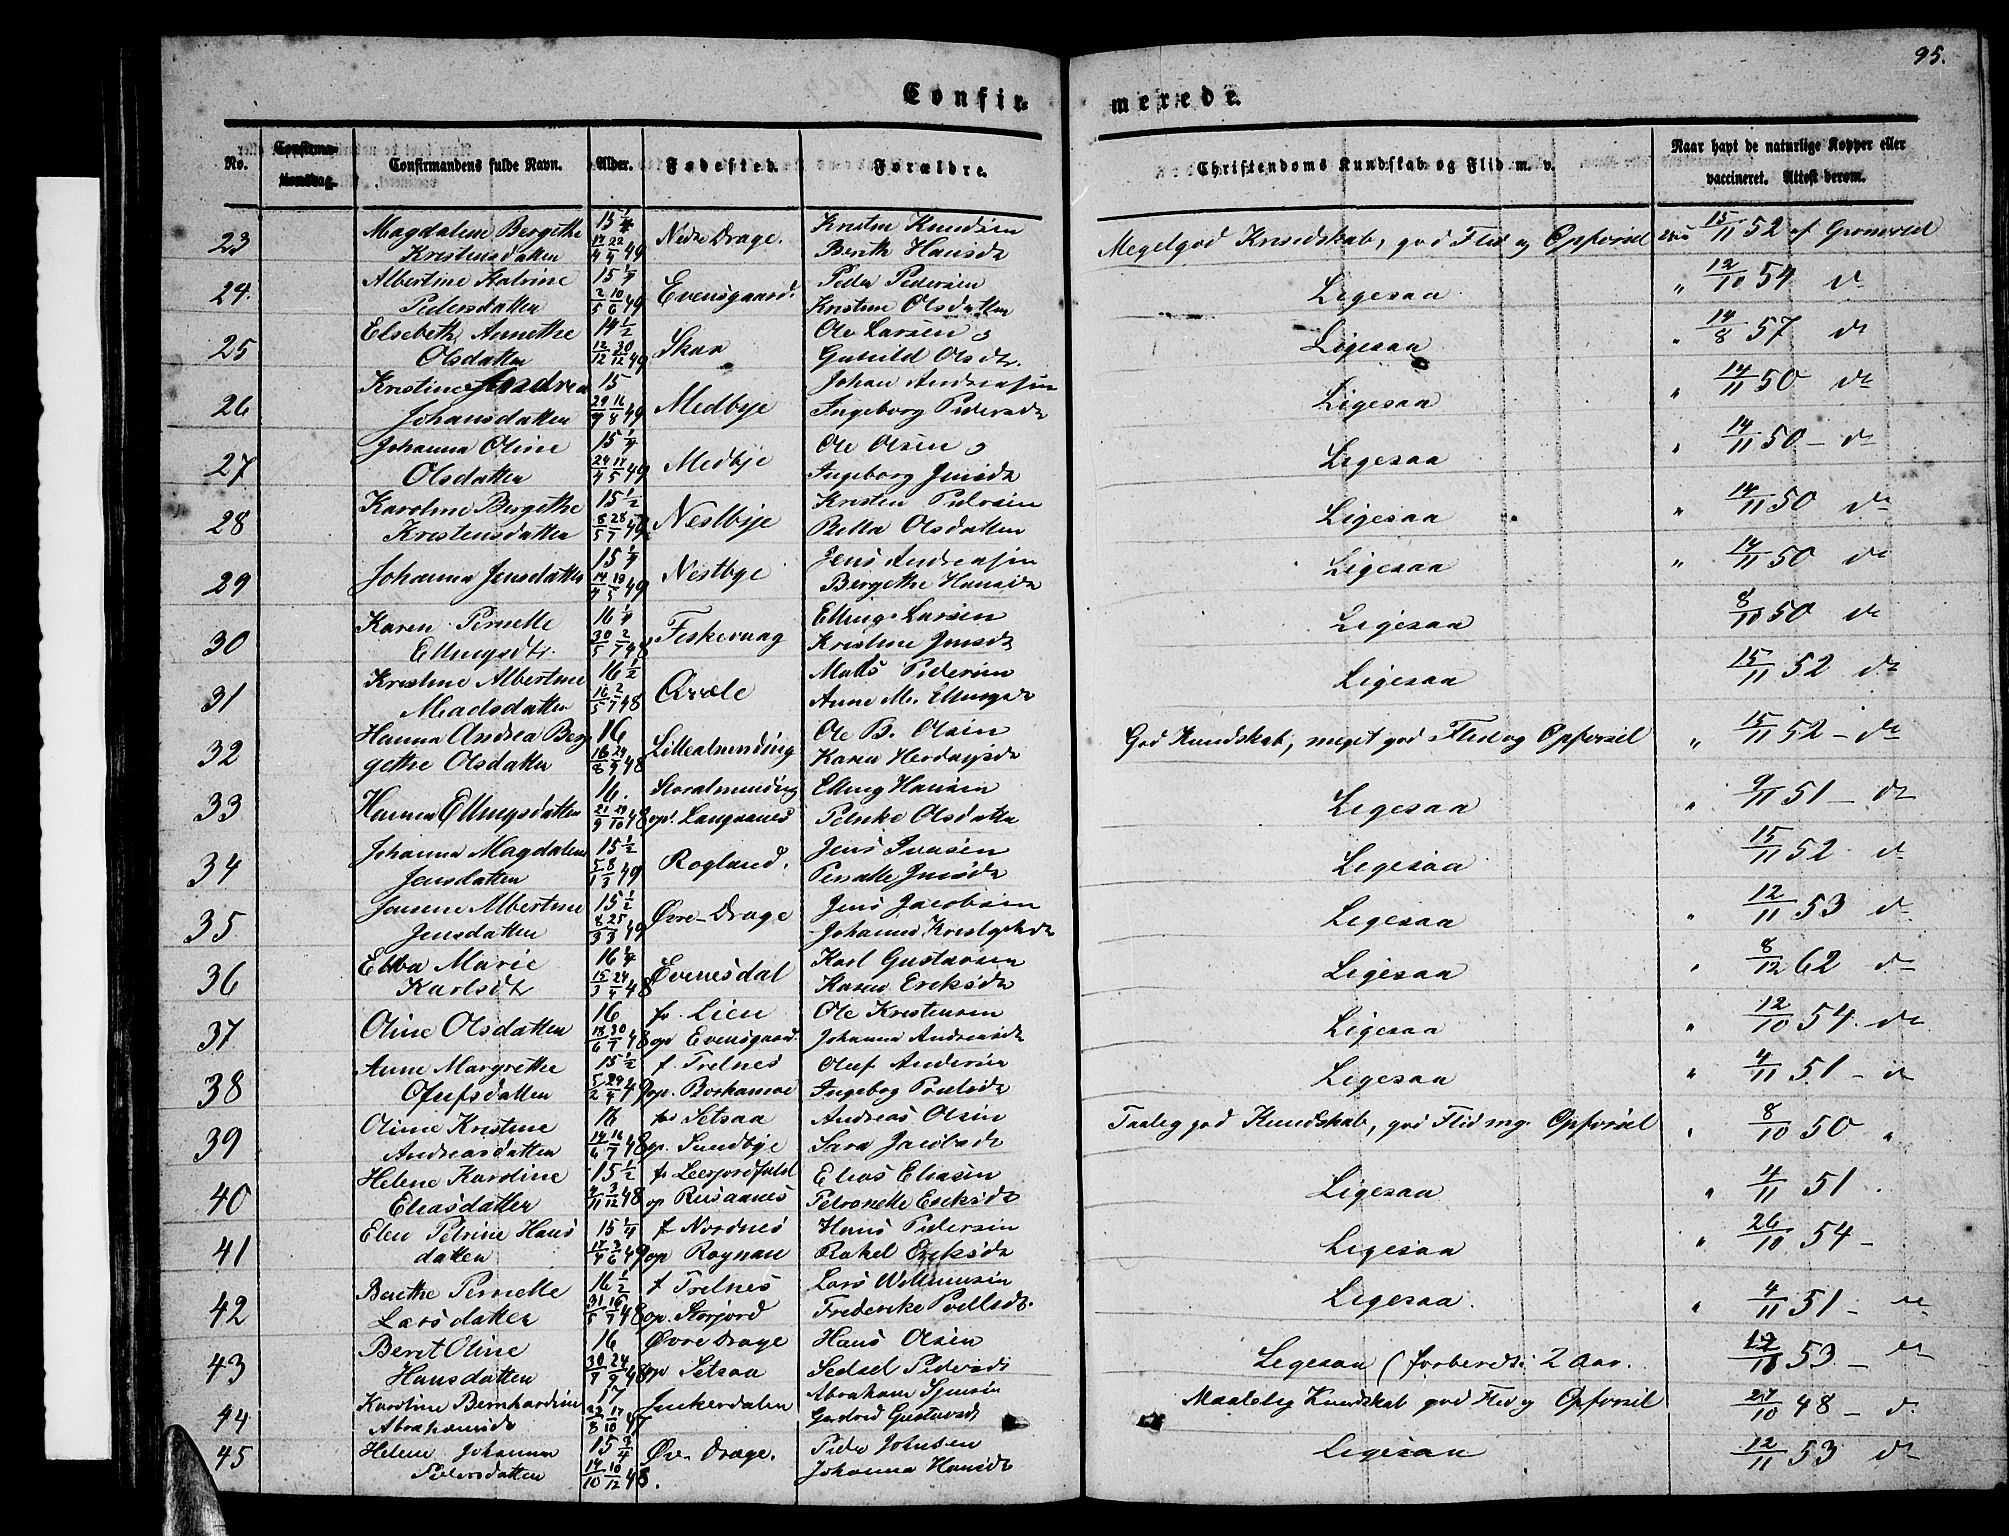 95.
Confir-
merede.
No.
Confirma-
tionsdag.
Confirmandens fulde Navn.
Alder.
Fødested.
Forældre.
Christendoms Kundskab og Flid m. v.
Naar havt de naturlige Kopper eller
vaccineret. Attest derom.
23
Magdalene Bergethe
Kristensdatten
15 1/4
17/4 22/4 49
Nedre Drage.
Kristen Knudsen
Berith Hansdt
Megetgod Kundskab, god Flid og Opførsel
15/11 52 af
24.
Albertine Katrine
Pedersdatten
15 1/4
2/5 10/6 49
Evensgaard.
Peder Pedersen
Kristine Olsdatten
Ligesaa
" 12/10 54 do
25
Elsebeth Annethe
Olsdatten
14 1/2
12/12 30/12 49
Skar
Ole Larsen
Gunild Olsdt.
Ligesaa
" 14/8 57 do
26
Kristine Andrea
Johansdatten
15
29/9 16/8 49
Medbye
Johan Andreasen
Ingeborg Pedersdt
Ligesaa
" 14/11 50 do
27
Johanna Oline
Olsdatten
15 1/4
24/4 17/5 49
Medbye
Ole Olsen
Ingeborg Jensdt
Ligesaa
" 14/11 50 - do
28
Karoline Bergethe
Kristensdatten
15 1/2
8/5 28/7 49
Nestbye
Kristen Pedersen
Bella Olsdatten
Ligesaa
" 14/11 50 do
29
Johanna Jensdatten
15 1/4
14/4 19/5 49
Nestbye
Jens Andreasen
Bergethe Hansdt
Ligesaa
" 14/11 50 do
30
Karen Pernelle
Ellingsdt.
16 1/4
30/5 2/7 48
Feskevaag
Elling Larsen
Kristine Jensdt
Ligesaa
8/10 50 do
31
Kristine Albertine
Madsdatten
16 1/2
16/5 2/7 48
Qvæle
Mads Pedersen
Anne M. Ellingsdt
Ligesaa
15/11 52 do
32
Hanna Andrea Ber
gethe Olsdatten
16
16/8 24/9 48
Lillealmending
Ole B. Olsen
Karen
God Kundskab, meget god Flid og Opførsel
" 15/11 52 - do
33
Hanna Ellingsdatten
16.
21/9 29/10 48
Storalmending
op. Langaanes
Elling Hansen
Olsdatten
Ligesaa
" 9/11 51 - do
34
Johanna Magdalene
Jensdatten
15 1/2
5/1 8/3 49
Rogland.
Jens Ivesen
Pernelle Jensdt
Ligesaa
15/11 52 do
35
Jensine Albertine
Jensdatten
15 1/2
8/3 25/3 49
Øvre-Drage
Jens Jacobsen
Johanna
Ligesaa
" 12/11 53 do
36
Ebba Marie
Karlsdt
16 1/4
15/3 24/4 48
Evenesdal
Karl Gustavsen
Karen Eriksdt
Ligesaa
" 8/12 62 do
37
Oline Olsdatten
16
18/6 30/7 48
fr. Lien
op Evensgaard.
Ole Kristensen
Johanna Andreasdt
Ligesaa
" 12/10 54. do
38
Anne Margrethe
Olufsdatten
15 1/2
5/2 24/4 49
f. Trelnes
op. Boskamoe
Oluf Andersen
Ingeborg Povelsdt
Ligesaa
" 4/11 51 - do
39
Oline Kristine
Andreasdatten
16
14/6 16/7 48
fr Setsaa
op. Sundbye
Andreas Olsen
Sara Jacobsdt
Taaleg god Kundskab, god Flid og Opførsel
" 8/10 50 "
40
Helene Kardine
Eliasdatter
15 1/2
4/11 3/12 48
fr Leerjordfald
op Rusaanes
Elias Eliasen
Petronelle Eriksdt
Ligesaa
" 4/11 51.
41
Elen Petrine Hans
datten
15 1/4
17/4 3/6 49
f Nordnes
op Rognan
Hans Pedersen
Rakel Eriksdt
Ligesaa
" 26/10 54 -
42
Berthe Pernelle
Larsdatter
16 1/2
31/5 16/7 48
f Trelnes
op. Storjord
Lars Willumsen
Frederike Povelsdt.
Ligesaa.
" 4/11 51 - do
43
Beret Oline
Hansdatten
16
30/7 24/9 48
Øvre Drage
op Setsaa
Hans Olsen
Sedsel Pedersdt
Ligesaa (forberedt i 2 Aar.
53 - do
44
Karoline Bernhardine
Abrahamsdt
17
22/8 17/10 47
Junkerdalen
Abraham Simsen
Gustavsdt
Maadelig Kundskab god Flid og Opførsel
27/10 48 - do
45
Helene Johanna
Pedersdatten
15 3/4
14/10 10/12 48.
Øv- Drage.
Peder Johnsen
Johanna Hansdt
Ligesaa
12/11 53 do